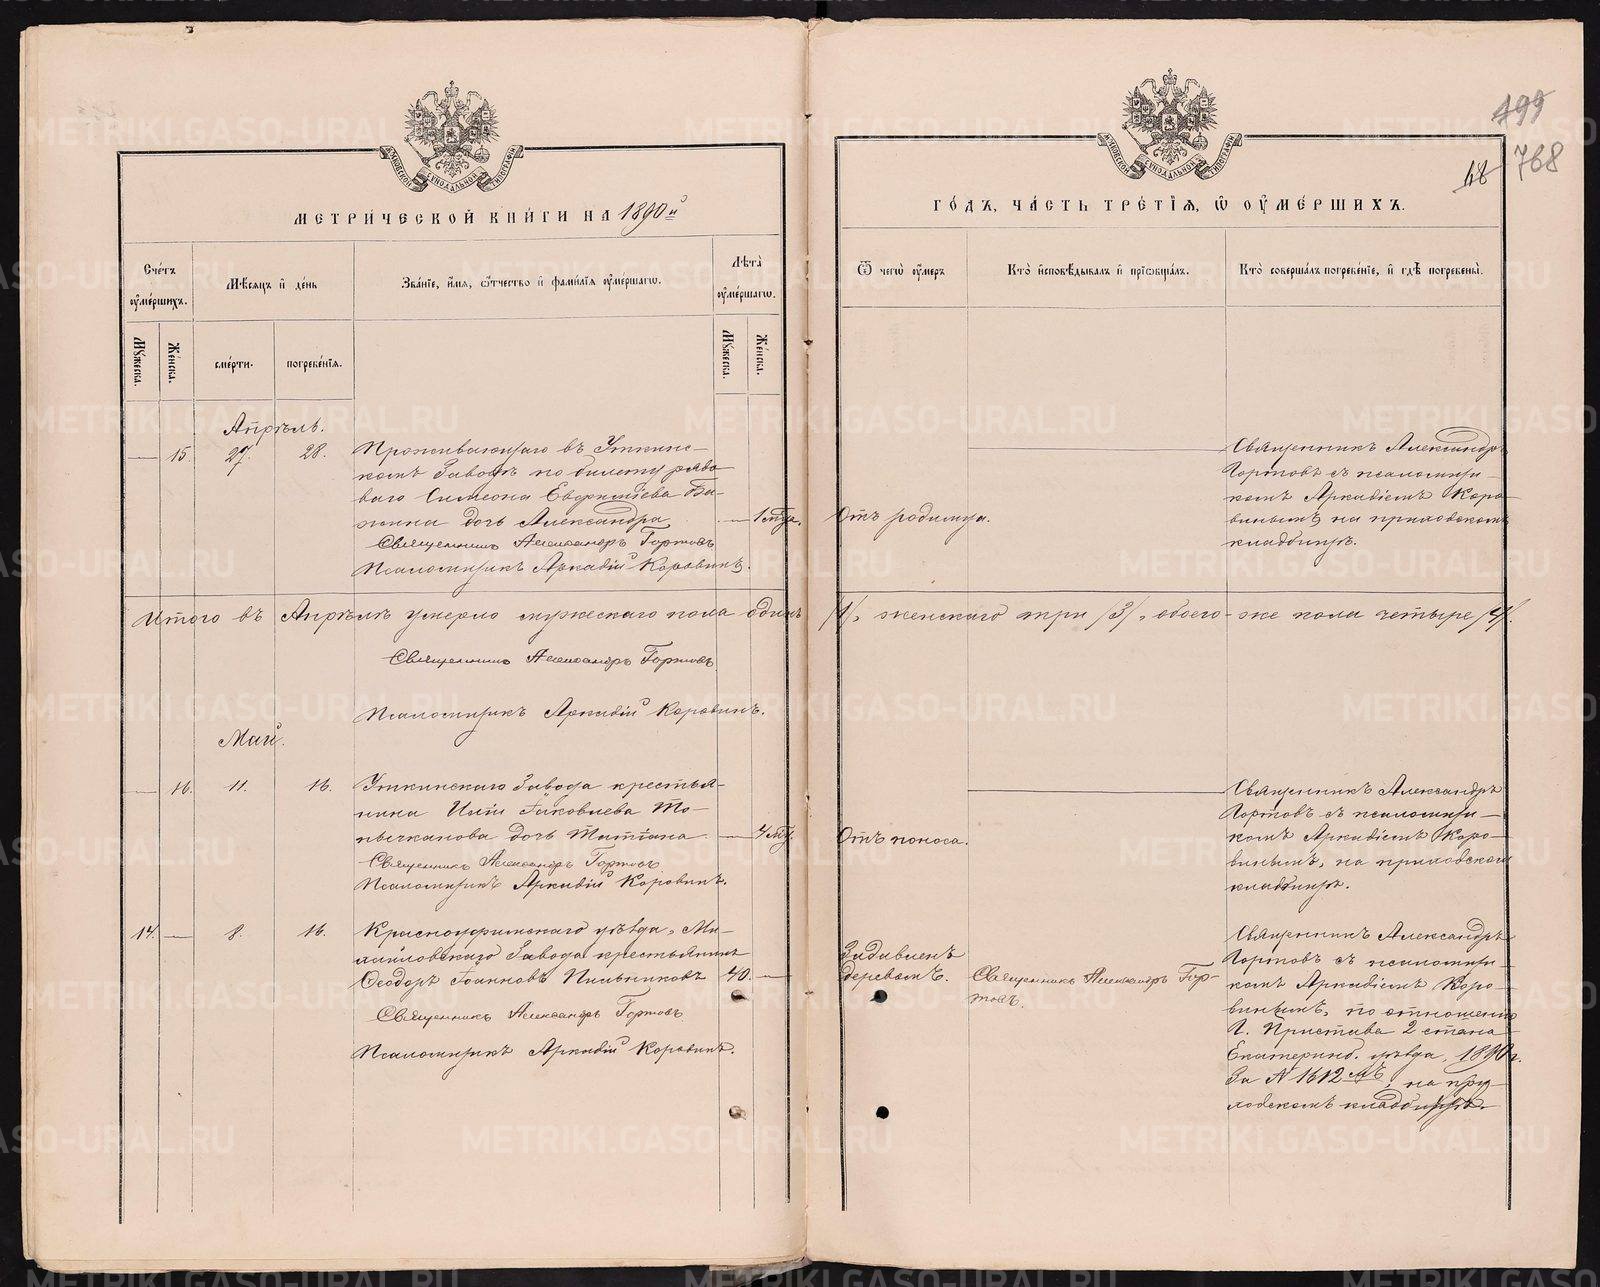 МЕТРИЧЕСКОЙ КНИГИ НА 1890й
Счетъ умершихъ.
Мѣсяцъ и день
Званіе, имя, отчество и фамилія умершаго.
Лѣта умершаго.
Мужеска.
Женска.
смерти.
погребенія.
Мужеска.
Женска.
Апрѣль.
— 15. 27. 28. Проживающаго въ Уткинс-
комъ Заводѣ по билету рядо-
ваго Симеона Евфиміева Ба-
жина дочь Александра — 1 мѣс.
Священникъ Александръ Гортовъ
Псаломщикъ Аркадій Коровинъ.
Итого въ Апрѣлѣ умерло мужескаго пола одинъ
Священникъ Александръ Гортовъ
Псаломщикъ Аркадій Коровинъ.
Май.
— 16. 11. 16. Уткинскаго Завода крестья-
нина Иліи Іаковлева То-
пычканова дочь Татіана — 4 мѣс.
Священникъ Александръ Гортовъ
Псаломщикъ Аркадій Коровинъ.
14. — 8. 16. Красноуфимскаго уѣзда, Ми-
хайловскаго Завода крестьянинъ
Ѳеодоръ Іоанновъ Пильниковъ 40. —
Священникъ Александръ Гортовъ
Псаломщикъ Аркадій Коровинъ.
499
48 768
ГОДЪ, ЧАСТЬ ТРЕТІЯ, Ѡ УМЕРШИХЪ.
Ѿ чего умеръ
Кто исповѣдывалъ и пріобщалъ.
Кто совершалъ погребеніе, и гдѣ погребены.
Отъ родимца.
Священникъ Александръ
Гортовъ съ псаломщи-
комъ Аркадіемъ Коро-
винымъ, на приходскомъ
кладбищѣ.
/1/, женскаго три /3/, обоего-же пола четыре /4/.
Отъ поноса.
Священникъ Александръ
Гортовъ съ псаломщи-
комъ Аркадіемъ Коро-
винымъ, на приходскомъ
кладбищѣ.
Задавленъ
деревомъ.
Священникъ Александръ Гор-
товъ.
Священникъ Александръ
Гортовъ съ псаломщи-
комъ Аркадіемъ Коро-
винымъ, по отношенію
Г. Пристава 2 стана
Екатеринб. уѣзда, 1890 г.
За № 1612мъ, на при-
ходскомъ кладбищѣ.
METRIKI.GASO-URAL.RU